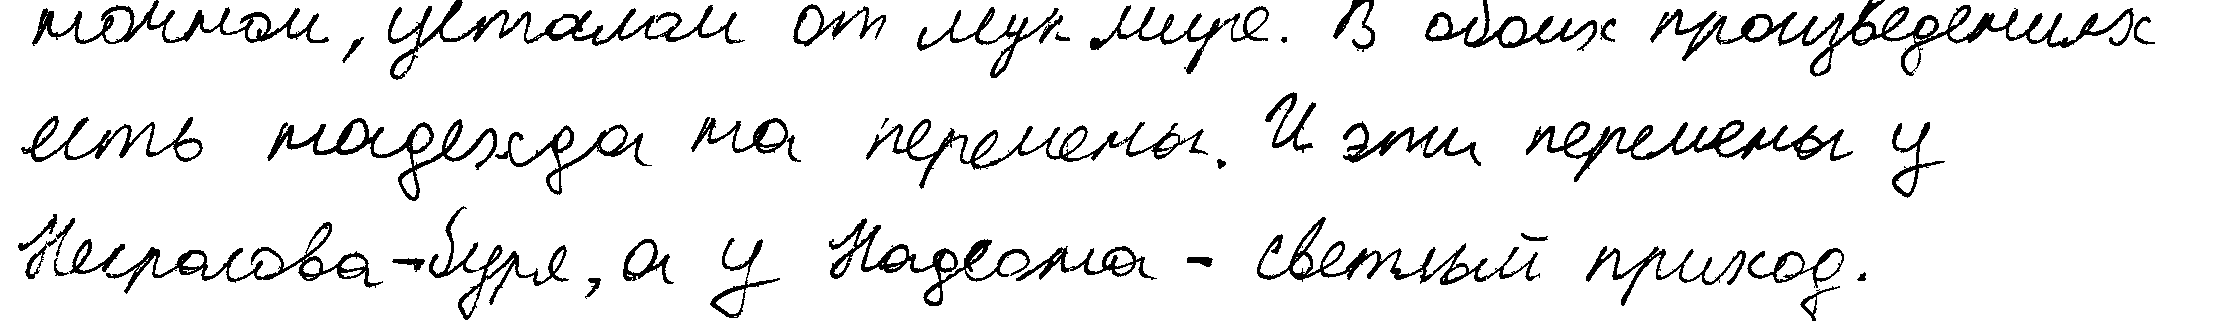 точном, усталом от мук мире. В обоих произведениях
есть надежда на перемены. И эти перемены у
Некрасова - буря, а у Надсона - светлый приход.